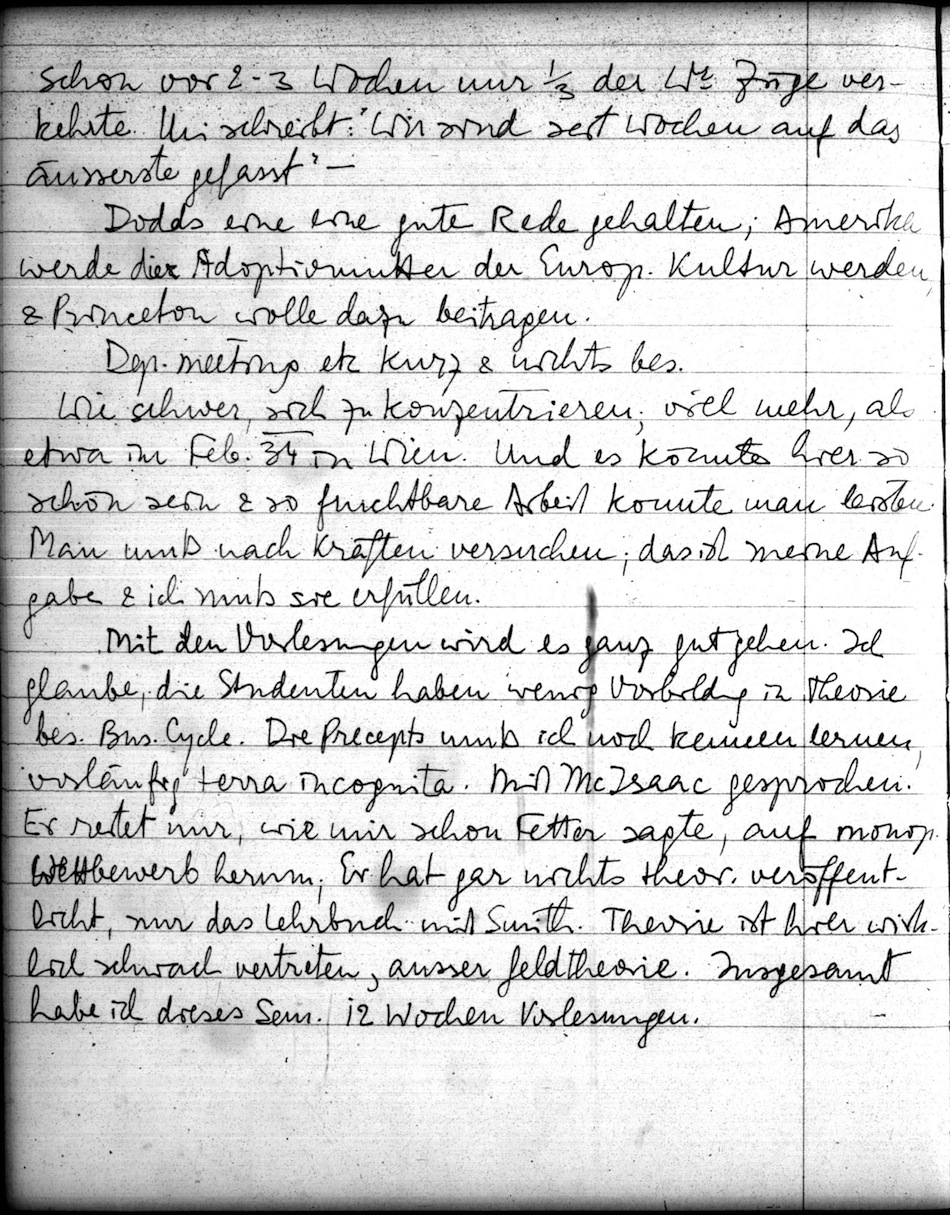 schon vor 2-3 Wochen nur 1/3 der Wr Züge ver-
kehrte. Mi schreibt: "Wir sind seit Wochen auf das
äusserste gefasst" –
Dodds eine eine gute Rede gehalten; Amerika
werde die Adoptivmutter der Europ. Kultur werden,
& Princeton wolle dazu beitragen.
Dep. meeting etc kurz & nichts bes.
Wie schwer, sich zu konzentrieren; viel mehr, als
etwa im Feb. 34 in Wien. Und es könnte hier so
schön sein & so fruchtbare Arbeit könnte man leisten.
Man muß nach Kräften versuchen; das ist meine Auf-
gabe & ich muß sie erfüllen.
Mit den Vorlesungen wird es ganz gut gehen. Ich
glaube, die Studenten haben wenig Vorbildg in Theorie
bes. Bus. Cycle. Die Precepts muß ich noch kennen lernen,
vorläufig terra incognita. Mit McIsaac gesprochen.
Er reitet nur, wie mir schon Fetter sagte, auf monop.
Wettbewerb herum; Er hat gar nichts theor. veröffent-
licht, nur das Lehrbuch mit Smith. Theorie ist hier wirk-
lich schwach vertreten, ausser Geldtheorie. Insgesamt
habe ich dieses Sem. 12 Wochen Vorlesungen.